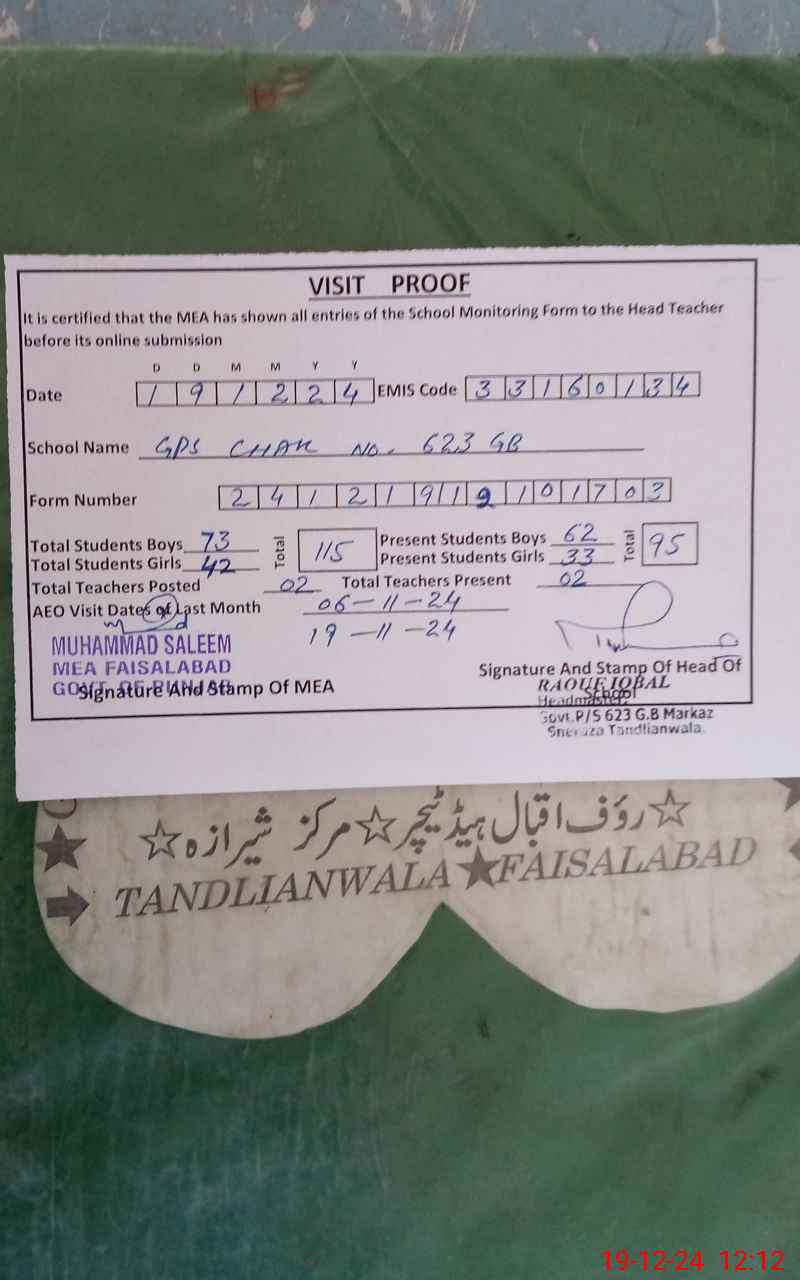 VISIT PROOF
It is certified that the MEA has shown all entries of the School Monitoring Form to the Head Teacher
before its online submission
D D M M Y Y
Date 1 9 1 2 2 4 EMIS Code 3 3 1 6 0 1 3 4
School Name GPS CHAK NO. 623 GB
Form Number 2 4 1 2 1 9 1 9 1 0 1 7 0 3
Total Students Boys 73 Total 115 Present Students Boys 62 Total 95
Total Students Girls 42 Present Students Girls 33
Total Teachers Posted 02 Total Teachers Present 02
AEO Visit Dates of Last Month 06-11-24
19-11-24
MUHAMMAD SALEEM
MEA FAISALABAD
GOVT. OF PUNJAB
Signature And Stamp Of MEA
Signature And Stamp Of Head Of
School
RAOUF IQBAL
Headmaster
Govt.P/S 623 G.B Markaz
Sheraza Tandlianwala.
☆رؤف اقبال ہیڈ ٹیچر☆مرکز شیرازہ☆
TANDLIANWALA★FAISALABAD
19-12-24 12:12